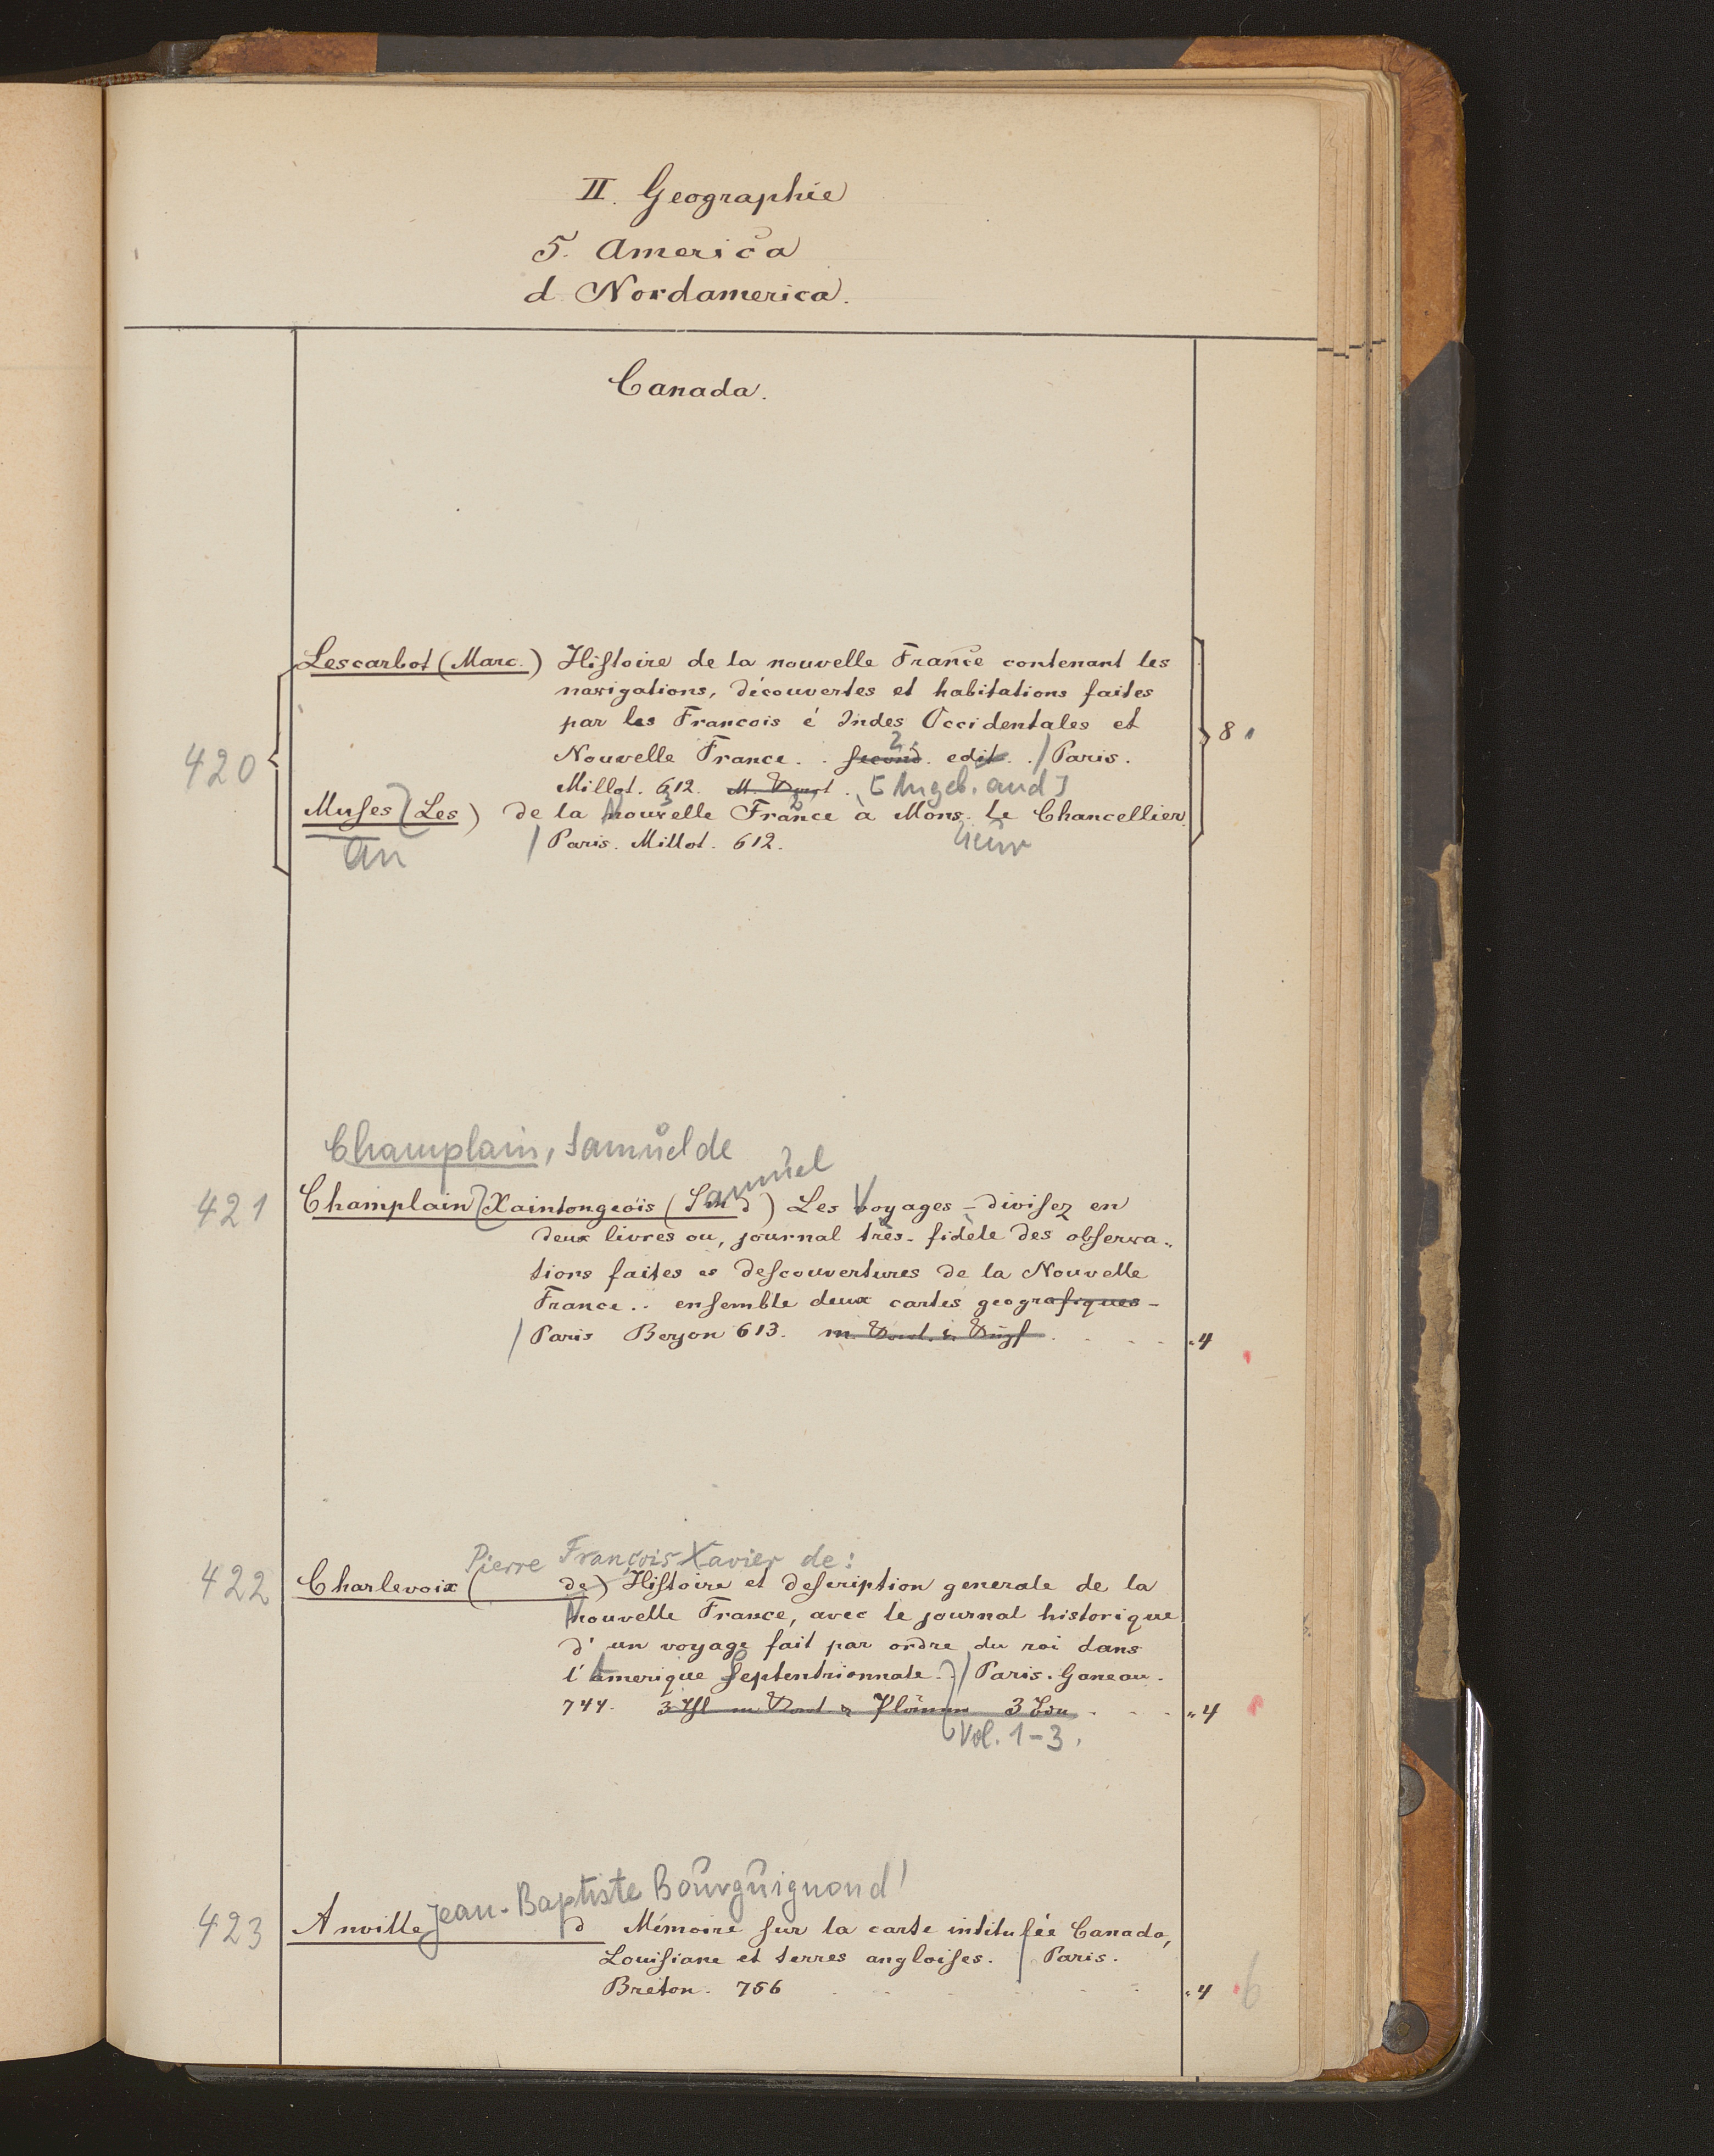 II. Geographie
5. America
d Nordamerica.
Canada.
Lescarbot (Marc.) Histoire de la nouvelle France contenant les
navigations, découvertes et habitations faites
par les Francois é Indes Occidentales et
2.
420
Nouvelle France. . second. edit. . / Paris.
8
Millot. 612. [Angeb. and]
Muses (Les) de la Nouvelle France à Mons. le Chancellier.
an
/ Paris. Millot. 612.
Champlain, Samuel de
Samuel
421
Champlain Xaintongeois (Sm d) Les Voyages - divisez en
deux livres ou, journal très-fidèle des observa-
tions faites es descouvertures de la Nouvelle
France .. ensemble deux cartes geografiques -
/ Paris Beryon 613. m.
4
Pierre François Xavier de:
422
Charlevoix ( de) Histoire et description generale de la
Nouvelle France, avec le journal historique
d'un voyage fait par ordre du roi dans
l'Amerique Septentrionnale. . / Paris. Ganeau.
744. 3
4
Vol. 1-3.
Jean-Baptiste Bourguignon d'
423
Anville d Mémoire sur la carte intitulée Canada,
Louisiane et terres angloises. / Paris.
Breton. 756
4 6